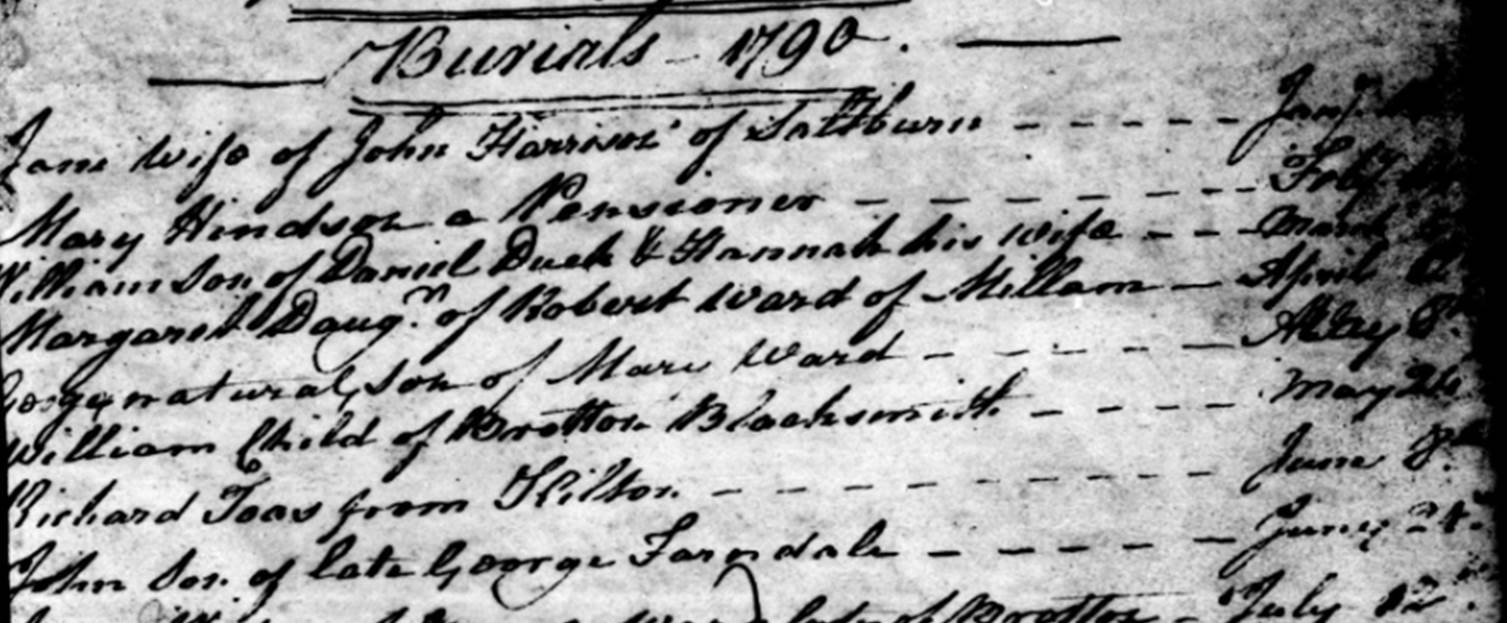 Burials - 1790.
Jane wife of John Harrison of Saltburn - - - - - - Jany.
Mary Hindson a Pensioner - - - - - - - Feby
William Son of Daniel Duck & Hannah his wife - - - March
Margaret Daugr. of Robert Ward of Millam - - April
George natural son of Mary Ward - - - - - - May 8th
William Child of Brotton Blacksmith - - - - - May 24
Richard Toas from Hilton - - - - - - - - - June 8th
John Son of late George Farndale - - - - - June 24th
late of Brotton - July 12